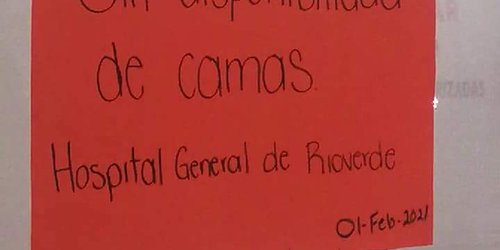 Sin disponibilidad
de camas.
Hospital General de Rioverde
01-Feb-2021